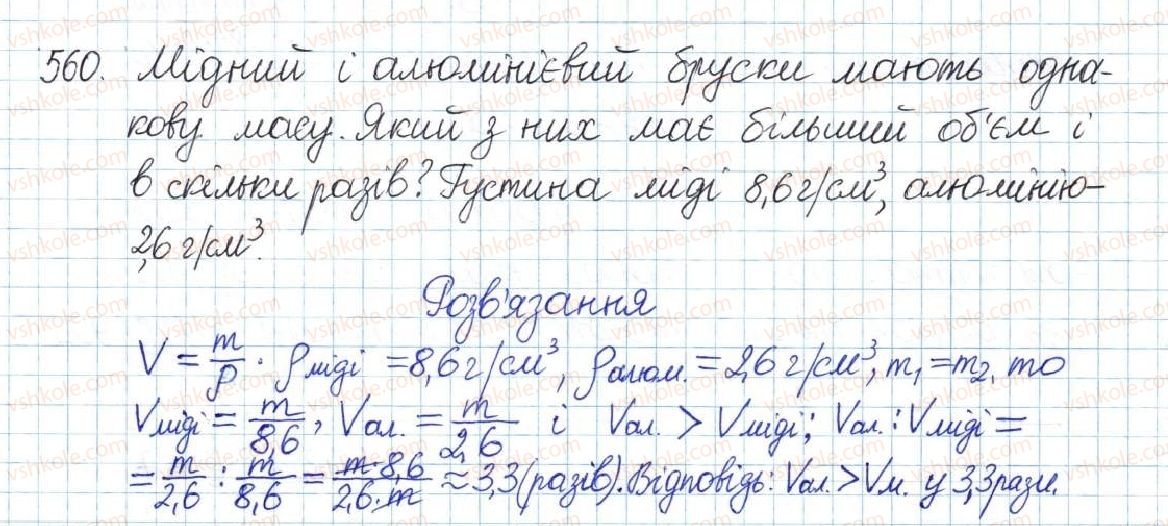 560. Мідний і алюмінієвий бруски мають одна-
кову масу. Який з них має більший об'єм і
в скільки разів? Густина міді 8,6 г/см³, алюмінію-
2,6 г/см³.
Розв'язання
V = m/ρ. ρміді = 8,6 г/см³, ρалюм. = 2,6 г/см³, m₁ = m₂, то
Vміді = m/8,6, Vал. = m/2,6 і Vал. > Vміді; Vал. : Vміді =
= m/2,6 : m/8,6 = m·8,6/2,6·m ≈ 3,3 (разів). Відповідь: Vал. > Vм. у 3,3 рази.